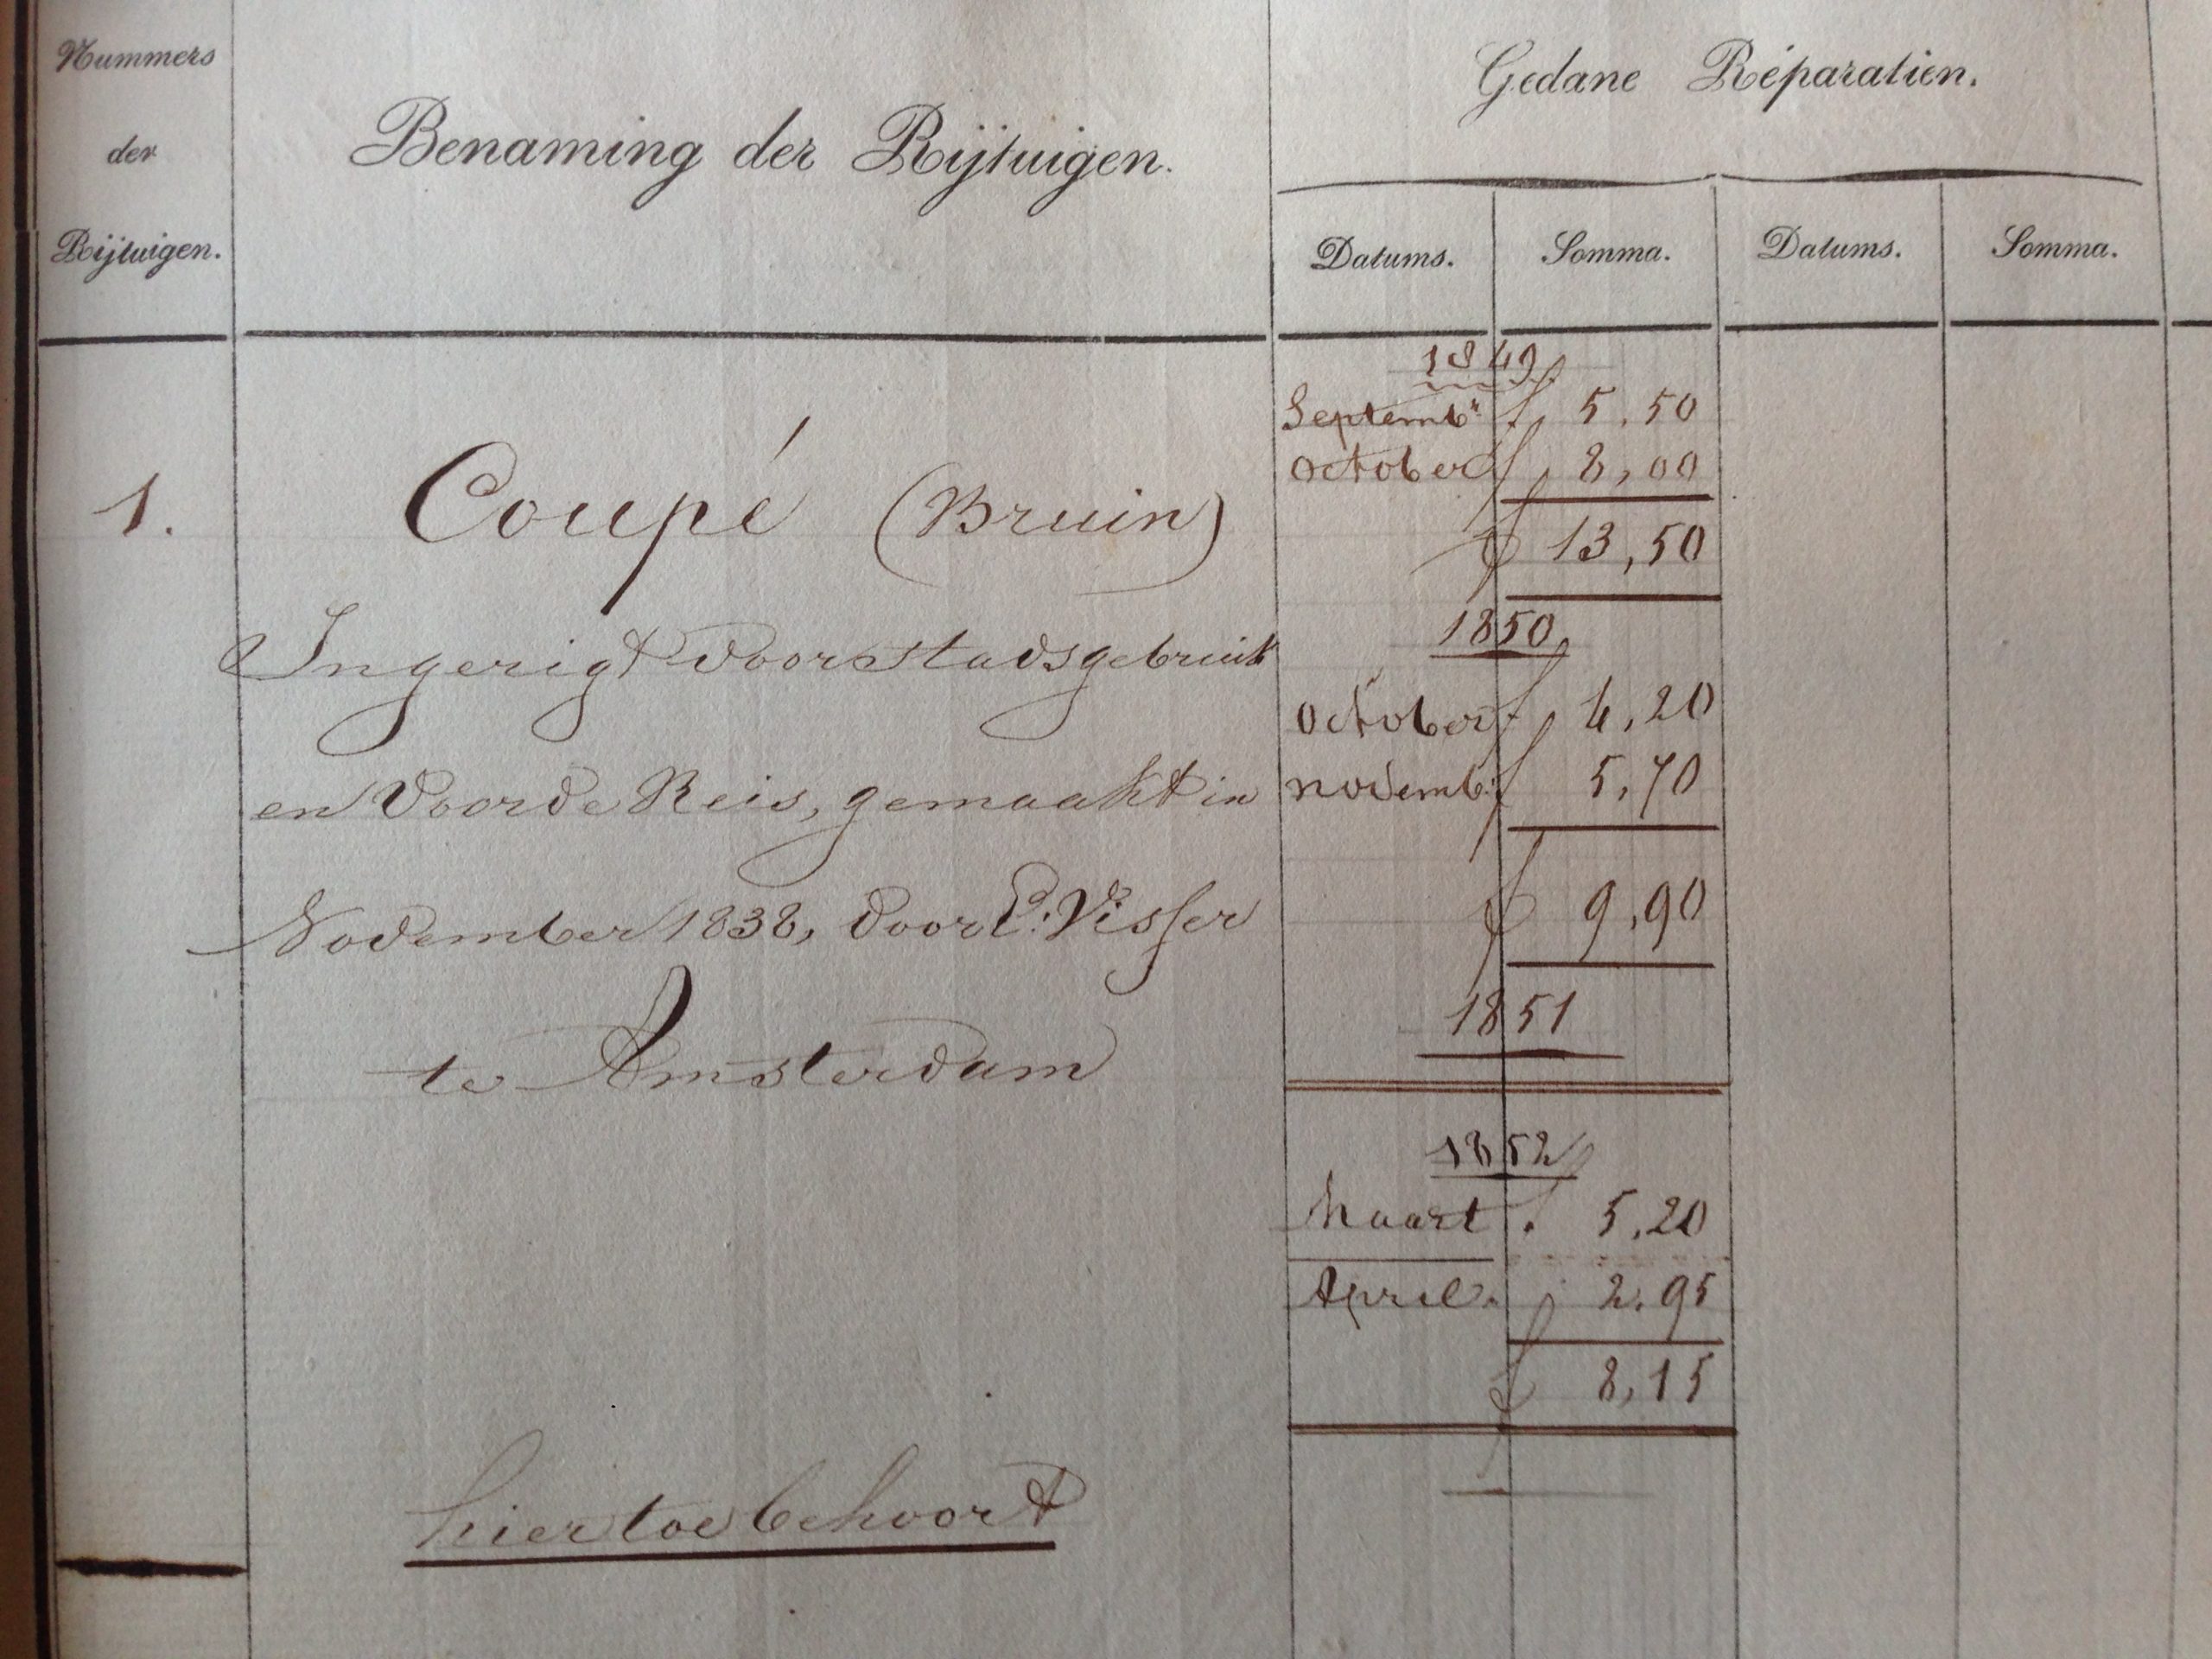 Nummers
der
Rijtuigen.
Benaming der Rijtuigen.
Gedane Réparatien.
Datums.
Somma.
Datums.
Somma.
1.
Coupé (Bruin)
Ingerigt voor stadsgebruik
en voor de Reis, gemaakt in
November 1838, door P. Visser
te Amsterdam
hiertoe behoort
1849
Septembr f 5,50
October f 8,00
f 13,50
1850
October f 4,20
novemb: f 5,70
f 9,90
1851
1852
Maart f 5,20
April. 2.95
f 8,15